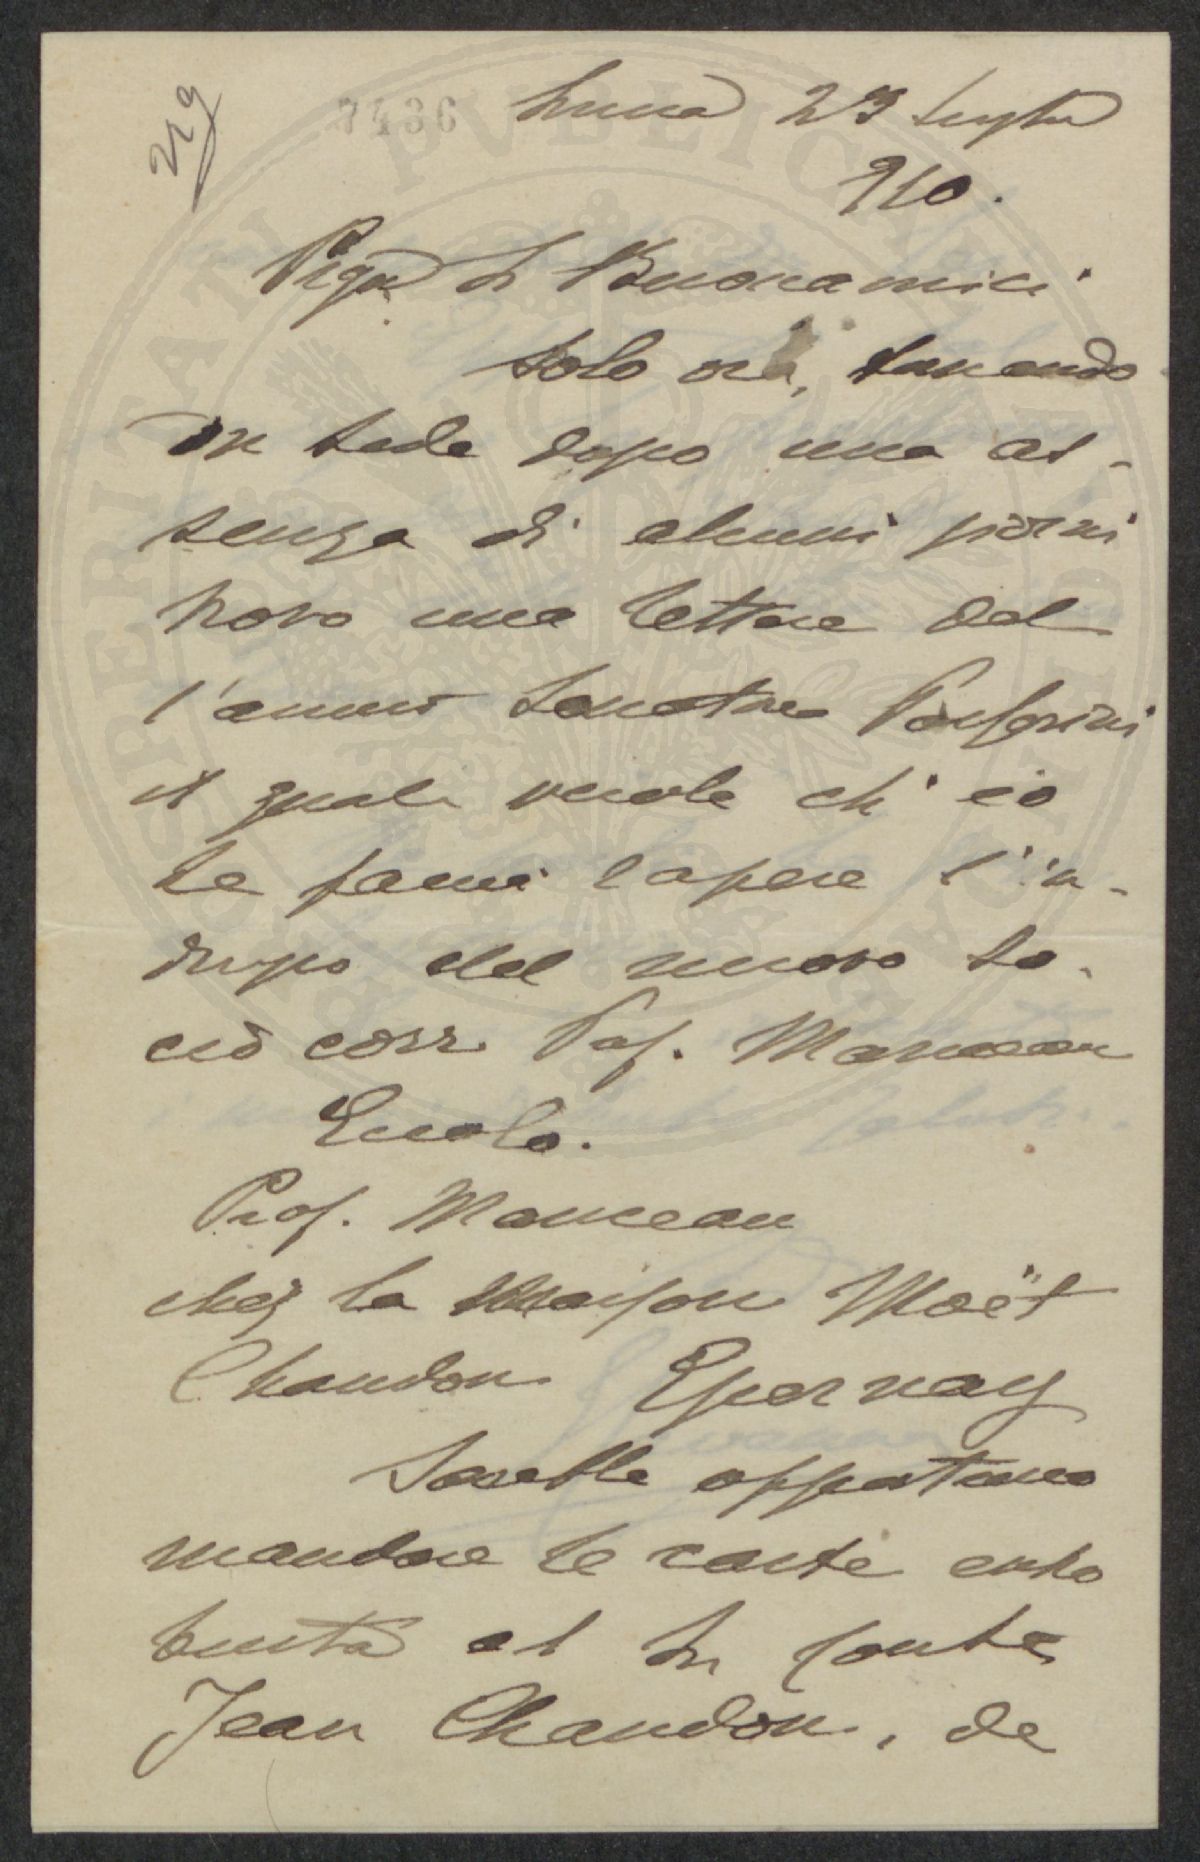 7436
23 Luglio
910.
Buonamici
Solo ora, tornando
in sede dopo una as-
senza di alcuni giorni
trovo una lettera del
l'amico Senatore
il quale vuole ch'io
Le facci sapere l'in-
dirizzo del nuovo So-
cio corr. Prof. Manceau
Eccolo.
Prof. Manceau
chez la Maison Moët
Chandon Epernay
Sarebbe opportuno
mandare le carte entro
busta al Conte
Jean Chandon, de